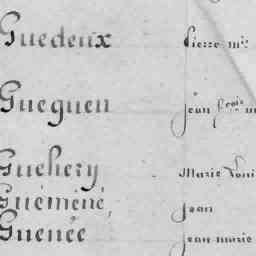 Guedeux Pierre m.ie
Gueguen jean fçois m
Guehery Marie Loui
Guémené, jean
Guenée jean marie